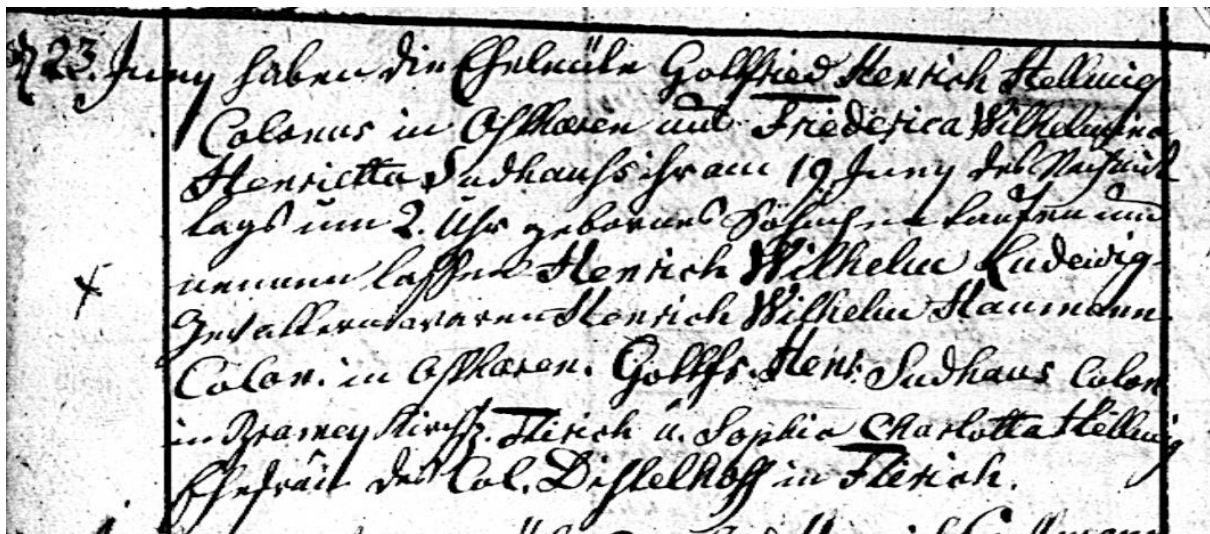 d 23. Juny haben die Eheleüte Gottfried Henrich Hellmig
Colonus in Osthæren und Friederica Wilhelmina
Henrietta Sudhauß ihr am 19 Juny des Nachmit
tags um 2. Uhr gebornes Söhnchen taufen und
nennen lassen Henrich Wilhelm Ludewig
Gevattern waren Henrich Wilhelm Haumann
Colon. in Osthæren. Gottfr. Henr. Sudhaus Colon
in Bramey Kirchsp. Flirich u. Sophia Charlotta Hellmig
Ehefrau des Col. Distelhoff in Flirich.